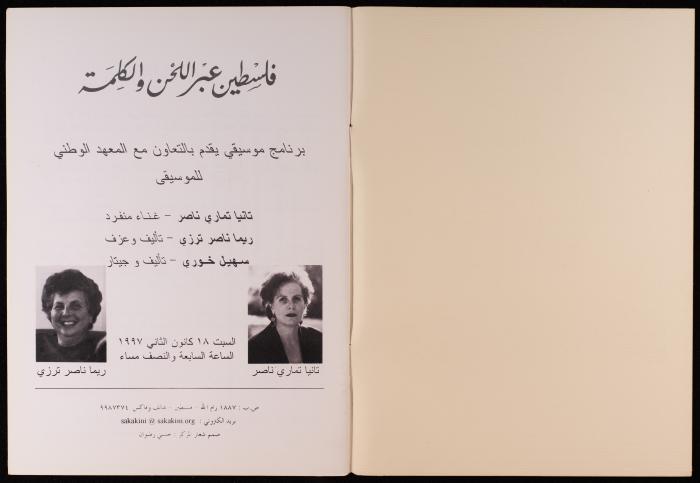 فلسطين عبر اللحن والكلمة
برنامج موسيقي يقدم بالتعاون مع المعهد الوطني
للموسيقى
تانيا تماري ناصر - غناء منفرد
ريما ناصر ترزي - تأليف وعزف
سهيل خوري - تأليف و جيتار
السبت ١٨ كانون الثاني ١٩٩٧
الساعة السابعة والنصف مساء
ريما ناصر ترزي
تانيا تماري ناصر
ص.ب : ١٨٨٧ رام الله - فلسطين - هاتف وفاكس ٩٩٨٧٣٧٤
بريد الكتروني : sakakini @ sakakini.org
صمم شعار المركز : حسني رضوان